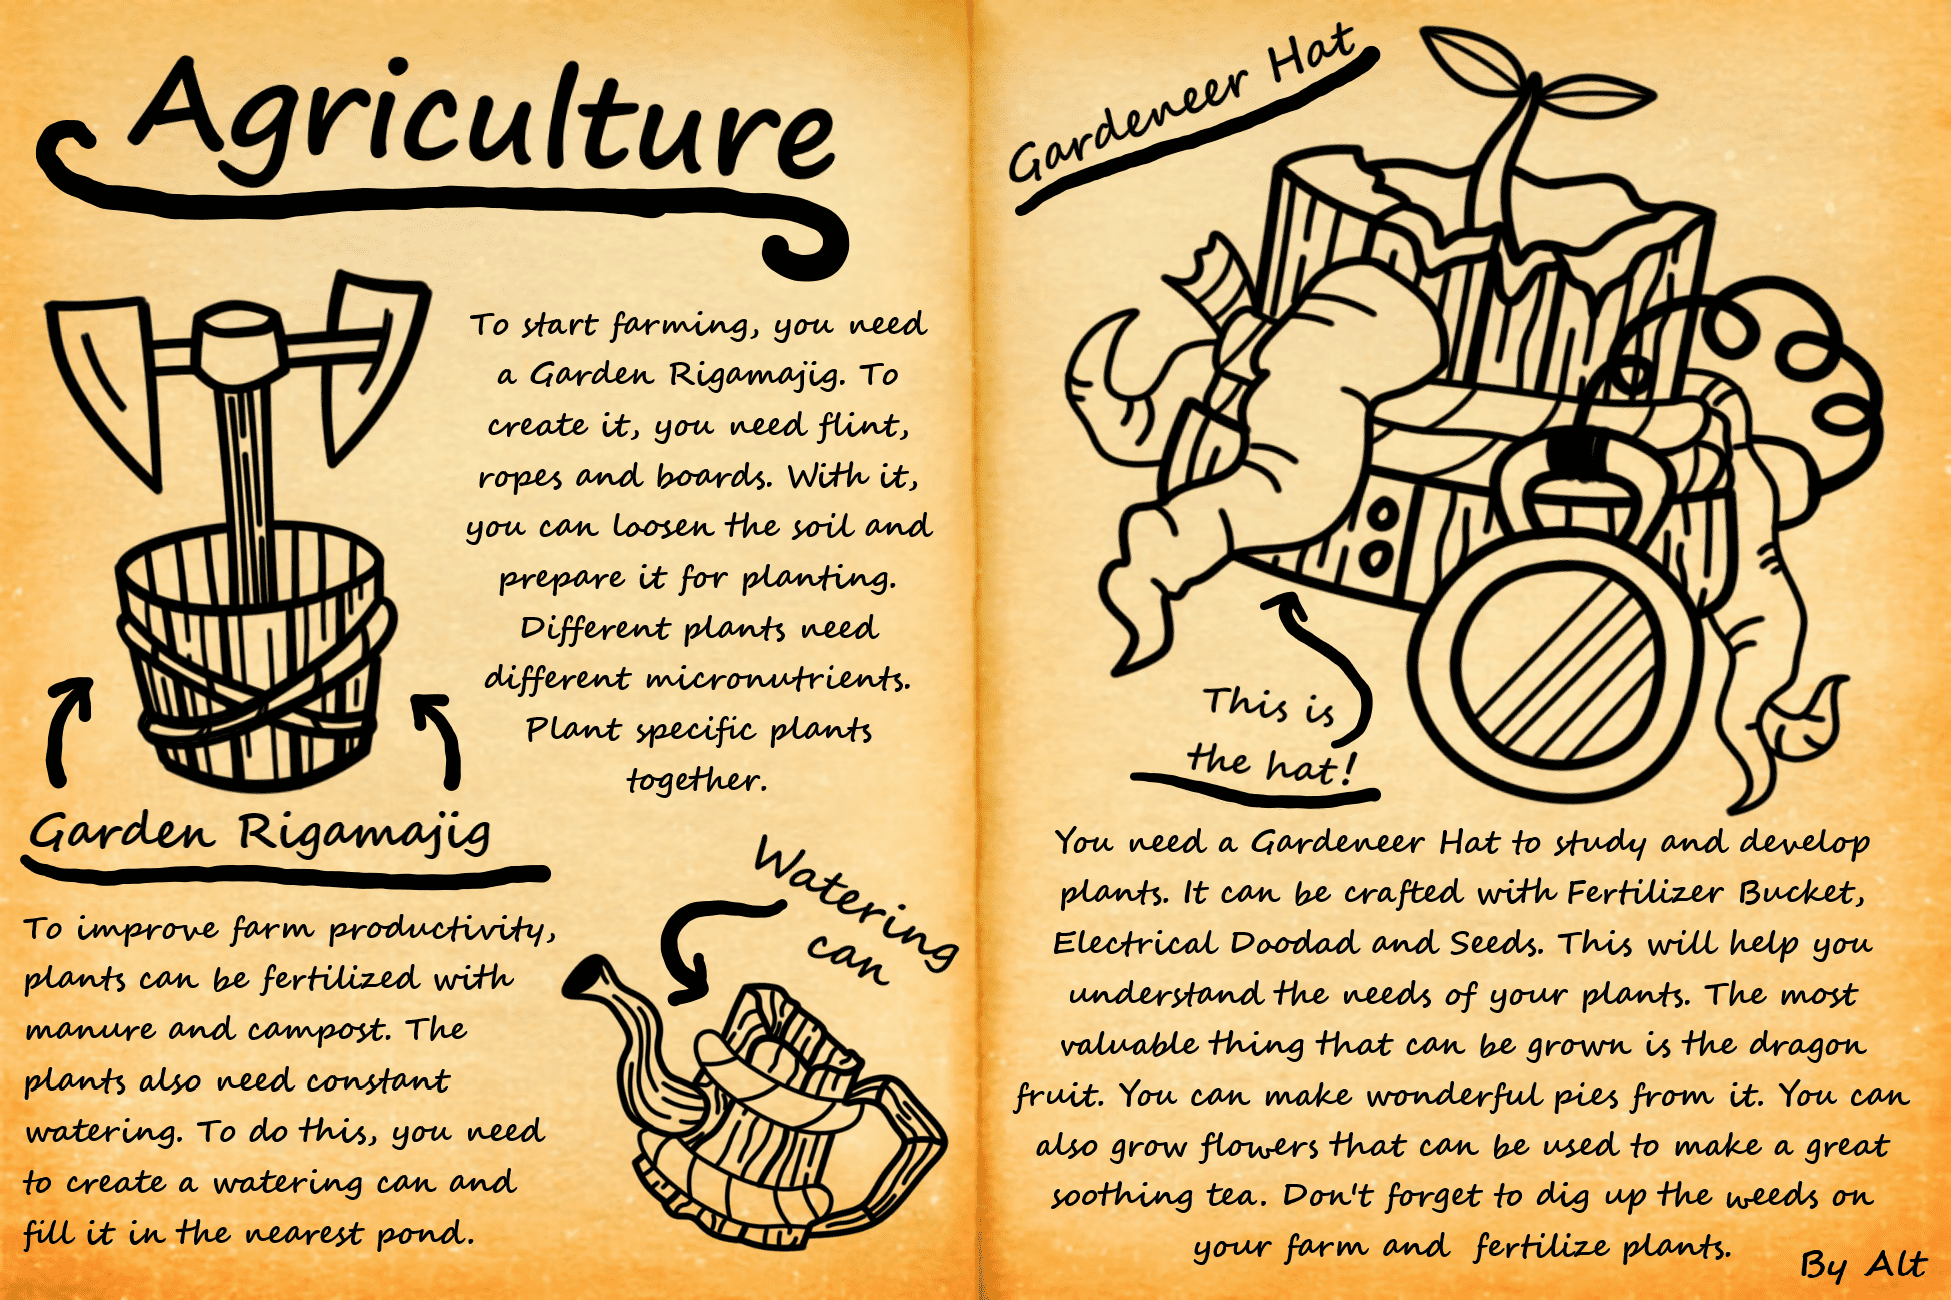 Agriculture
To start farming, you need
a Garden Rigamajig. To
create it, you need flint,
ropes and boards. With it,
you can loosen the soil and
prepare it for planting.
Different plants need
different micronutrients.
Plant specific plants
together.
Garden Rigamajig
To improve farm productivity,
plants can be fertilized with
manure and campost. The
plants also need constant
watering. To do this, you need
to create a watering can and
fill it in the nearest pond.
Watering
can
Gardeneer Hat
This is
the hat!
You need a Gardeneer Hat to study and develop
plants. It can be crafted with Fertilizer Bucket,
Electrical Doodad and Seeds. This will help you
understand the needs of your plants. The most
valuable thing that can be grown is the dragon
fruit. You can make wonderful pies from it. You can
also grow flowers that can be used to make a great
soothing tea. Don't forget to dig up the weeds on
your farm and fertilize plants.
By Alt